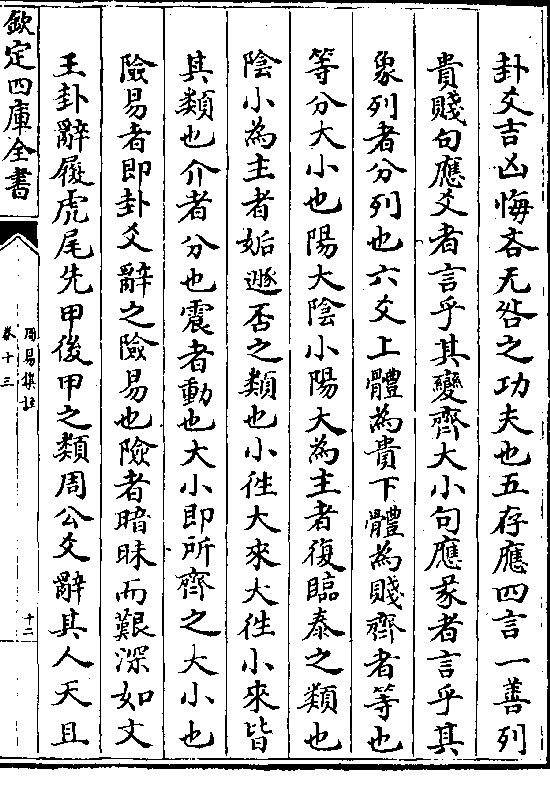 卦爻吉凶悔吝无咎之功夫也五存應四言一善列
貴賤句應爻者言乎其變齊大小句應彖者言乎其
象列者分列也六爻上體為貴下體為賤齊者等也
等分大小也陽大陰小陽大為主者復臨泰之類也
陰小為主者姤遯否之類也小徃大來大徃小來皆
其類也介者分也震者動也大小即所齊之大小也
險易者即卦爻辭之險易也險者暗昧而艱深如文
王卦辭履虎尾先甲後甲之類周公爻辭其人天且
欽定四庫全書
周易集註
卷十三
十二